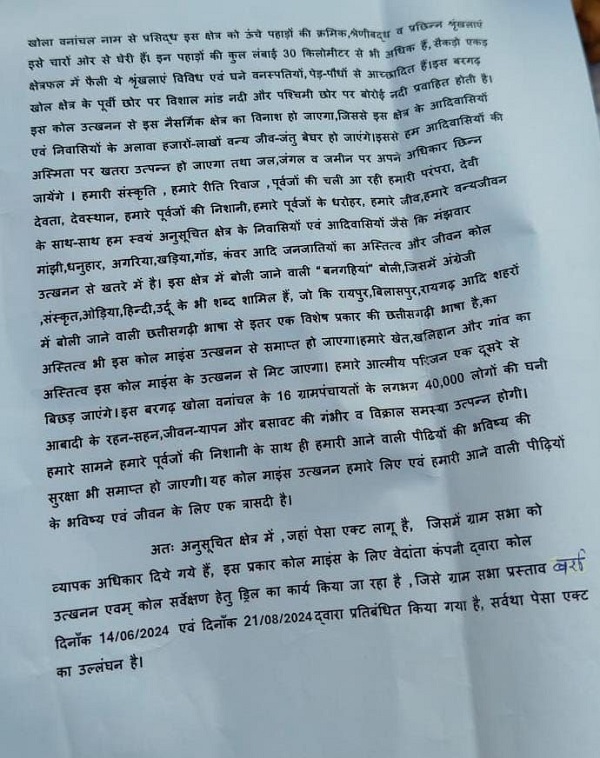 खोला वनांचल नाम से प्रसिद्ध इस क्षेत्र को ऊंचे पहाड़ों की क्रमिक,श्रेणीबद्ध व प्रछिन्न श्रृंखलाएं
इसे चारों ओर से घेरी हैं। इन पहाड़ों की कुल लंबाई 30 किलोमीटर से भी अधिक हैं,सैकड़ो एकड़
क्षेत्रफल में फैली ये श्रृंखलाएं विविध एवं घने वनस्पतियों,पेड़-पौधों से आच्छादित हैं।इस बरगढ़
खोल क्षेत्र के पूर्वी छोर पर विशाल मांड नदी और पश्चिमी छोर पर बोरोई नदी प्रवाहित होती है।
इस कोल उत्खनन से इस नैसर्गिक क्षेत्र का विनाश हो जाएगा,जिससे इस क्षेत्र के आदिवासियों
एवं निवासियों के अलावा हजारों-लाखों वन्य जीव-जंतु बेघर हो जाएंगे।इससे हम आदिवासियों की
अस्मिता पर खतरा उत्पन्न हो जाएगा तथा जल,जंगल व जमीन पर अपने अधिकार छिन्न
जायेंगे । हमारी संस्कृति , हमारे रीति रिवाज ,पूर्वजों की चली आ रही हमारी परंपरा, देवी
देवता, देवस्थान, हमारे पूर्वजों की निशानी,हमारे पूर्वजों के धरोहर, हमारे जीव,हमारे वन्यजीवन
के साथ-साथ हम स्वयं अनुसूचित क्षेत्र के निवासियों एवं आदिवासियों जैसे कि मंझवार
मांझी,धनुहार, अगरिया,खड़िया,गोंड, कंवर आदि जनजातियों का अस्तित्व और जीवन कोल
उत्खनन से खतरे में है। इस क्षेत्र में बोली जाने वाली "बनगहियां" बोली,जिसमें अंग्रेजी
,संस्कृत,ओड़िया,हिन्दी,उर्दू के भी शब्द शामिल हैं, जो कि रायपुर,बिलासपुर,रायगढ़ आदि शहरों
में बोली जाने वाली छतीसगढ़ी भाषा से इतर एक विशेष प्रकार की छतीसगढ़ी भाषा है,का
अस्तित्व भी इस कोल माइंस उत्खनन से समाप्त हो जाएगा।हमारे खेत,खलिहान और गांव का
अस्तित्व इस कोल माइंस के उत्खनन से मिट जाएगा। हमारे आत्मीय परिजन एक दूसरे से
बिछड़ जाएंगे।इस बरगढ़ खोला वनांचल के 16 ग्रामपंचायतों के लगभग 40,000 लोगों की घनी
आबादी के रहन-सहन,जीवन-यापन और बसावट की गंभीर व विक्राल समस्या उत्पन्न होगी।
हमारे सामने हमारे पूर्वजों की निशानी के साथ ही हमारी आने वाली पीढियों की भविष्य की
सुरक्षा भी समाप्त हो जाएगी।यह कोल माइंस उत्खनन हमारे लिए एवं हमारी आने वाली पीढ़ियों
के भविष्य एवं जीवन के लिए एक त्रासदी है।
अतः अनुसूचित क्षेत्र में ,जहां पेसा एक्ट लागू है, जिसमें ग्राम सभा को
व्यापक अधिकार दिये गये हैं, इस प्रकार कोल माइंस के लिए वेदांता कंपनी द्वारा कोल
उत्खनन एवम् कोल सर्वेक्षण हेतु ड्रिल का कार्य किया जा रहा है ,जिसे ग्राम सभा प्रस्ताव
दिनाँक 14/06/2024 एवं दिनाँक 21/08/2024द्वारा प्रतिबंधित किया गया है, सर्वथा पेसा एक्ट
का उल्लंघन है।